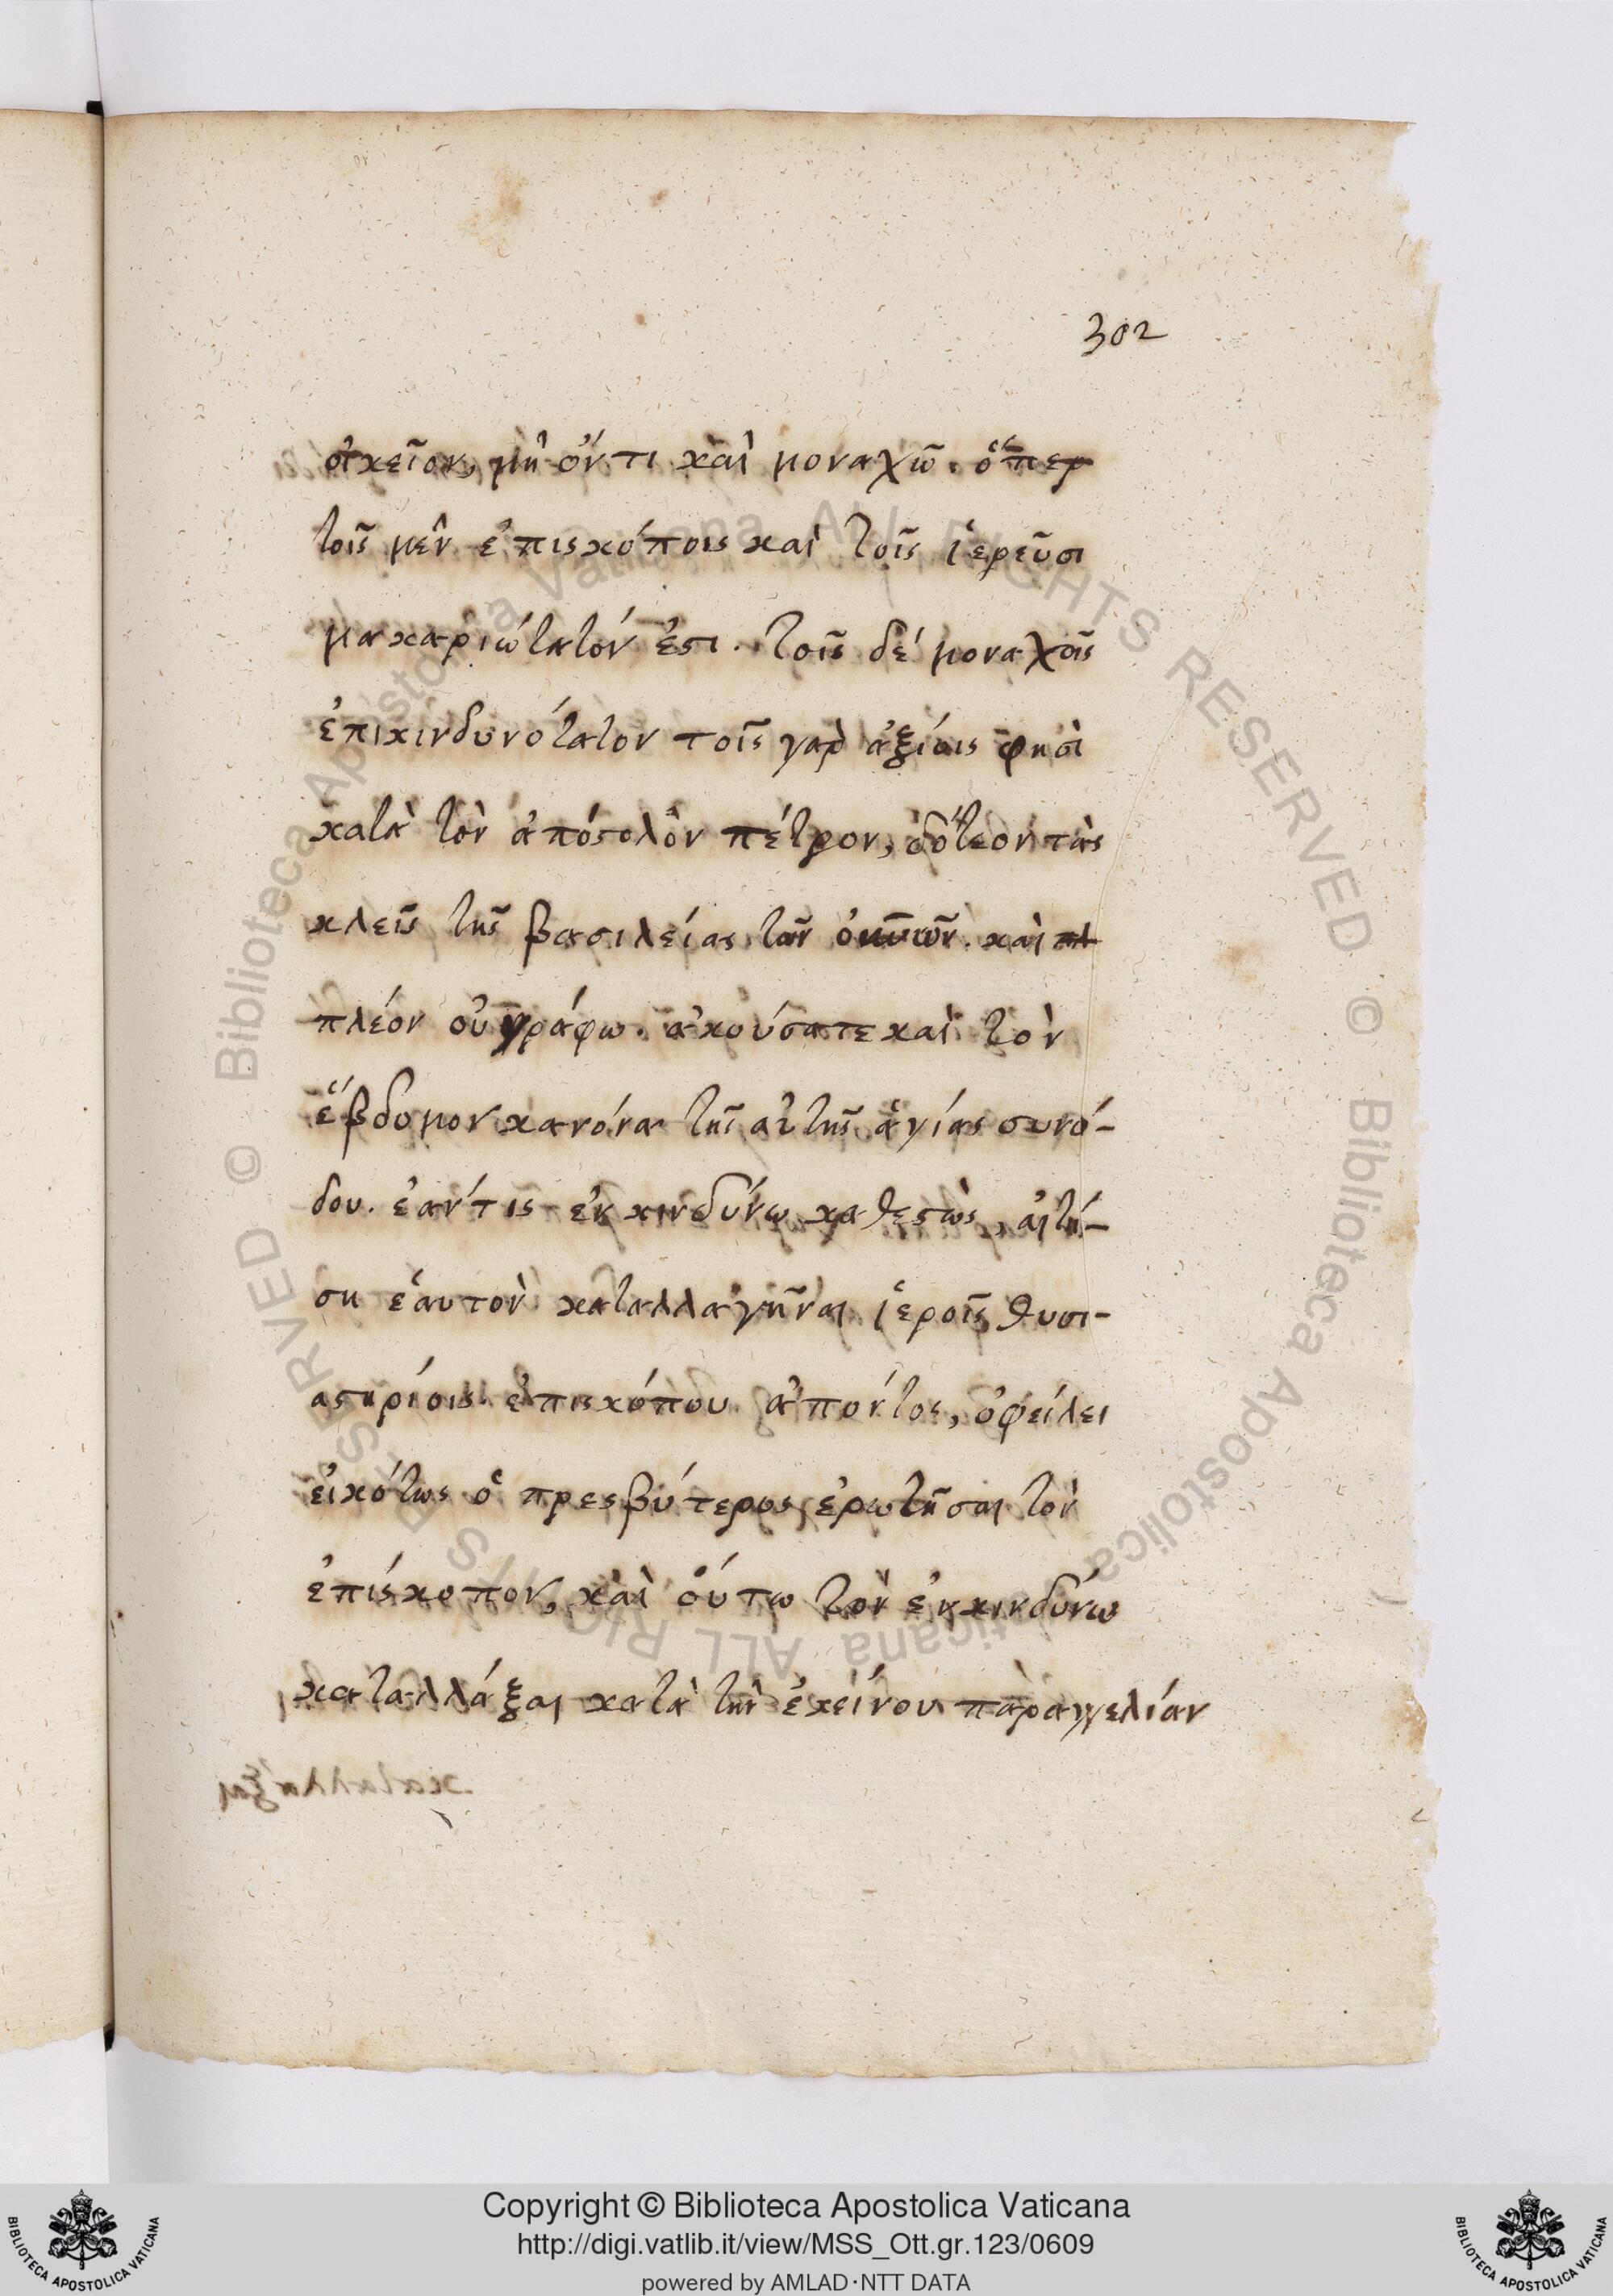 302
οἰκεῖον, μὴ ὄντι καὶ μοναχῶ. ὅπερ
τοῖς μὲν ἐπισκόποις καὶ τοῖς ἱερεῦσι
μακαριώτατόν ἐστι. τοῖς δέ μοναχοῖς
ἐπικινδυνότατον τοῖς γὰρ ἀξίοις φησὶ
κατὰ τὸν ἀπόστολον πέτρον, δοτέον τὰς
κλεῖς τῆς βασιλείας τῶν οὐνῶν. καὶ πλ
πλέον οὐ γράφω. ἀκούσατε καὶ τὸν
ἕβδομον κανόνα τῆς αὐτῆς ἁγίας συνό-
δου. ἐάν τις ἐν κινδύνω καθεστὼς, αἰτή-
ση ἑαυτὸν καταλλαγῆναι ἱεροῖς θυσι-
αστηρίοις ἐπισκόπου ἀπόντος, ὀφείλει
εἰκότως ὁ πρεσβύτερος ἐρωτῆσαι τὸν
ἐπίσκοπον, καὶ οὕτω τὸν ἐν κινδύνω
καταλλάξαι κατὰ τὴν ἐκείνου παραγγελίαν
© Biblioteca Apostolica Vaticana ALL RIGHTS RESERVED © Biblioteca Apostolica Vaticana ALL RIGHTS RESERVED
Copyright © Biblioteca Apostolica Vaticana
http://digi.vatlib.it/view/MSS_Ott.gr.123/0609
powered by AMLAD·NTT DATA
BIBLIOTECA APOSTOLICA VATICANA
BIBLIOTECA APOSTOLICA VATICANA